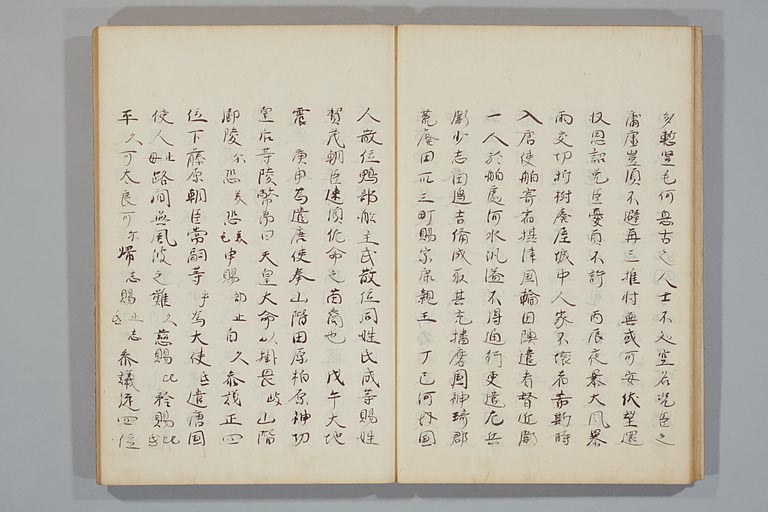 多慙覽毛何無古之人士不処空名况臣之
庸虚豈須不避再三推忖無或可安伏望還
収恩詔免臣憂負不許丙辰夜暴大風暴
雨交切折樹廃屋城中人家不壊者希斯時
入唐使舶寄宿摂津国輪田陳遣看督近衛
一人於舶處河水汎溢不得通行更遣左兵
衛少志田邊吉備成取其平播磨国神埼郡
荒廃田卅三町賜宗康親王丁巳河内国
人散位鴨部船主氏散位同姓氏成等賜姓
賀茂朝臣速須佐命之苗裔也戊午大地
震庚申為遣唐使奉山階田原柏原神功
皇后等陵幣帛曰天皇大命以掛畏岐山階
御陵尓恐美恐美毛申賜部止白久参議正四
位下藤原朝臣常嗣等乎為大使弖遣唐国
使人毋路間無風波之難久慈賜比矜賜比弖
平久可太良可尓帰志賜止志弖参議従四位